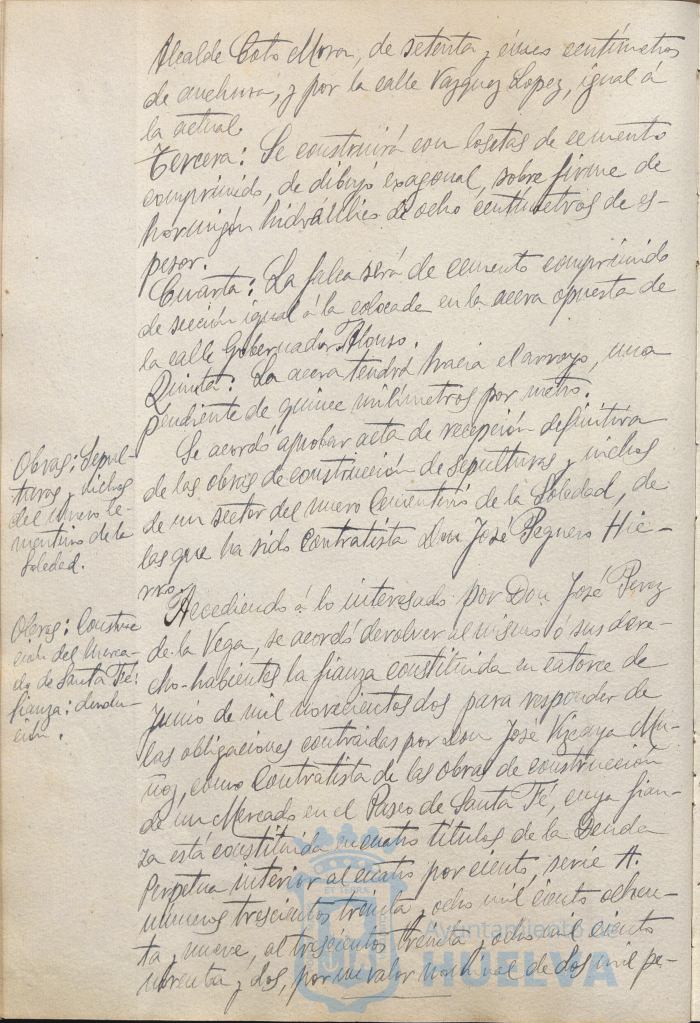 Alcalde Coto Mora, de setenta y cinco centímetros
de anchura, y por la calle Vazquez Lopez, igual á
la actual.
Tercera: Se construirá con losetas de cemento
comprimido, de dibujo exagonal, sobre firme de
hormigón hidráulico de ocho centímetros de es-
pesor.
Cuarta: La falca será de cemento comprimido
de sección igual á la colocada en la acera opuesta de
la calle Gobernador Alonso.
Quinta: La acera tendrá hacia el arroyo, una
pendiente de quince milímetros por metro.
Obras: Sepul-
turas y nichos
del nuevo Ce-
menterio de la
Soledad.
Se acordó aprobar acta de recepción definitiva
de las obras de construcción de sepulturas y nichos
de un sector del nuevo Cementerio de la Soledad, de
las que ha sido contratista Don José Peguero Hie-
rro.
Obras: Construc-
ción del Merca-
do de Santa Fé:
fianza: devolu-
ción.
Accediendo á lo interesado por Don José Perez
de la Vega, se acordó devolver al mismo ó sus dere-
cho-habientes la fianza constituida en catorce de
Junio de mil novecientos dos para responder de
las obligaciones contraidas por Don José Vizcaya Mu-
ñoz, como contratista de las obras de construcción
de un Mercado en el Paseo de Santa Fé, cuya fian-
za está constituida en cuatro títulos de la Deuda
Perpetua interior al cuatro por ciento, serie A.
números trescientos treinta y ocho mil ciento ochen-
ta y nueve, al trescientos treinta y ocho mil ciento
noventa y dos, por un valor nominal de dos mil pe-
Ayuntamiento de
HUELVA